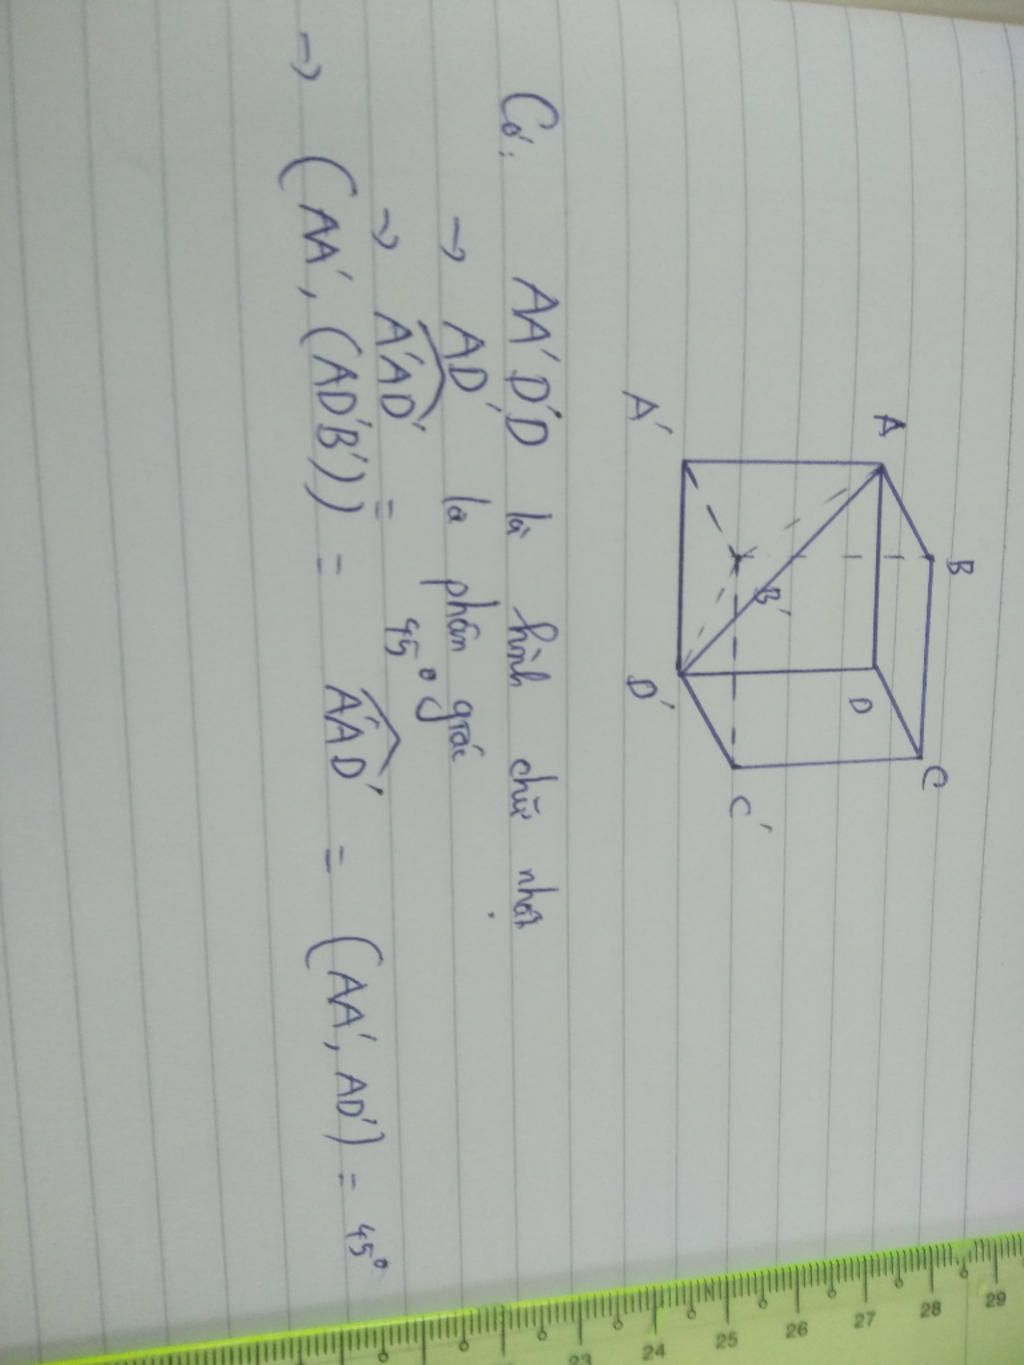 A
B
C
D
A'
B'
C'
D'
Có: AA'D'D là hình chữ nhật
→ AD' là phân giác
→ A'AD' = 45°
→ (AA', (AD'B')) = A'AD' = (AA', AD') = 45°
23 24 25 26 27 28 29